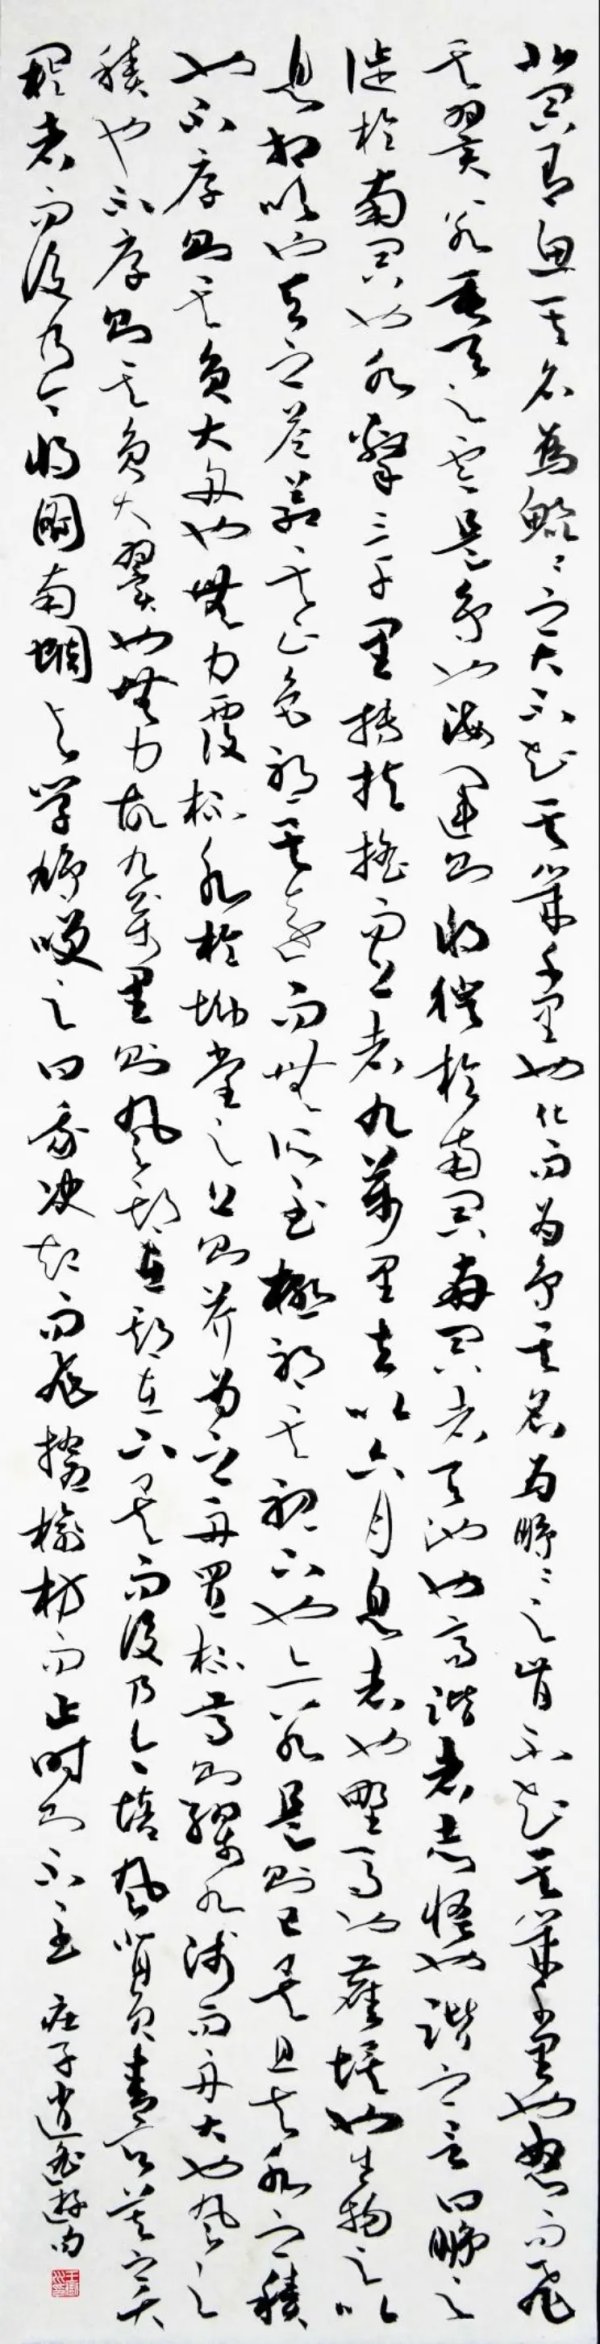 北冥有魚其名為鯤〻之大不知其幾千里也化而為鳥其名為鵬〻之背不知其幾千里也怒而飛
其翼若垂天之雲是鳥也海運則將徙於南冥南冥者天池也齊諧者志怪也諧之言曰鵬之
徙於南冥也水擊三千里摶扶搖而上者九萬里去以六月息者也野馬也塵埃也生物之以
息相吹也天之蒼蒼其正色邪其遠而無所至極邪其視下也亦若是則已矣且夫水之積
也不厚則其負大舟也無力覆杯水於坳堂之上則芥為之舟置杯焉則膠水淺而舟大也風之
積也不厚則其負大翼也無力故九萬里則風斯在斯在下矣而後乃今培風背負青天莫之夭
閼者而後乃今將圖南蜩與學鳩笑之曰我決起而飛搶榆枋而止時則不至 莊子逍遙遊句